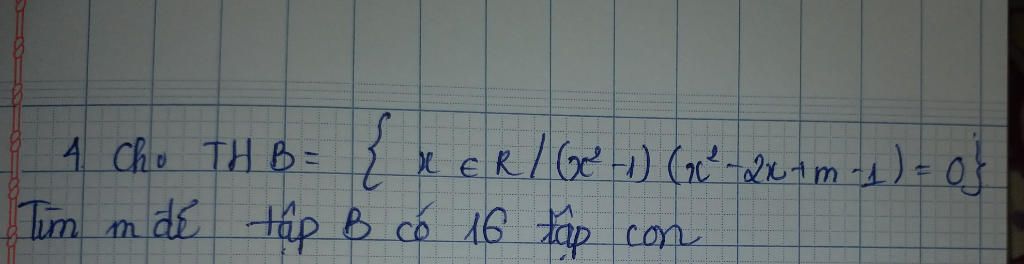 4. Cho TH B = { x ∈ R / (x² - 1) (x² - 2x + m - 1) = 0 }
Tìm m để tập B có 16 tập con